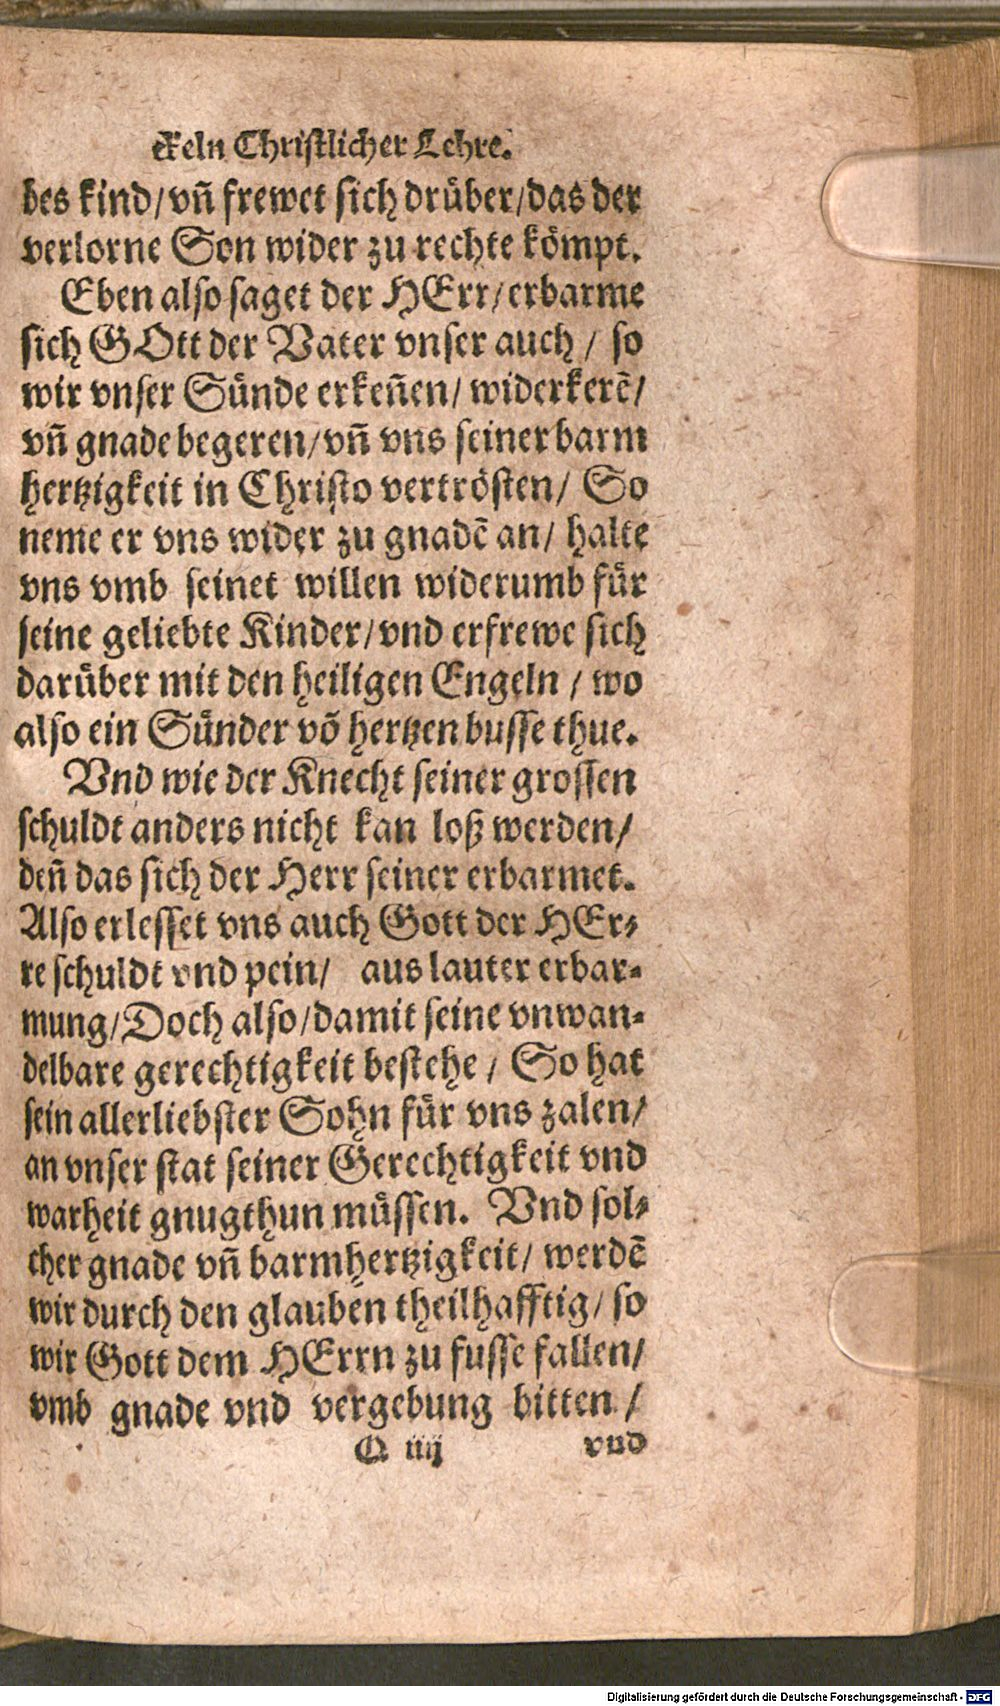 ckeln Christlicher Lehre.
bes kind/ vñ frewet sich drüber/ das der
verlorne Son wider zu rechte kömpt.
Eben also saget der HErr/ erbarme
sich GOtt der Vater vnser auch / so
wir vnser Sünde erkeñen/ widerkerē/
vñ gnade begeren/ vñ vns seiner barm
hertzigkeit in Christo vertrösten/ So
neme er vns wider zu gnadē an/ halte
vns vmb seinet willen widerumb für
seine geliebte Kinder/ vnd erfrewe sich
darüber mit den heiligen Engeln / wo
also ein Sünder võ hertzen busse thue.
Vnd wie der Knecht seiner grossen
schuldt anders nicht kan loß werden/
deñ das sich der Herr seiner erbarmet.
Also erlesset vns auch Gott der HEr-
re schuldt vnd pein/ aus lauter erbar-
mung/ Doch also/ damit seine vnwan-
delbare gerechtigkeit bestehe / So hat
sein allerliebster Sohn für vns zalen/
an vnser stat seiner Gerechtigkeit vnd
warheit gnugthun müssen. Vnd sol-
cher gnade vñ barmhertzigkeit/ werdē
wir durch den glauben theilhafftig/ so
wir Gott dem HErrn zu fusse fallen/
vmb gnade vnd vergebung bitten /
Q iiij vnd
Digitalisierung gefördert durch die Deutsche Forschungsgemeinschaft - DFG